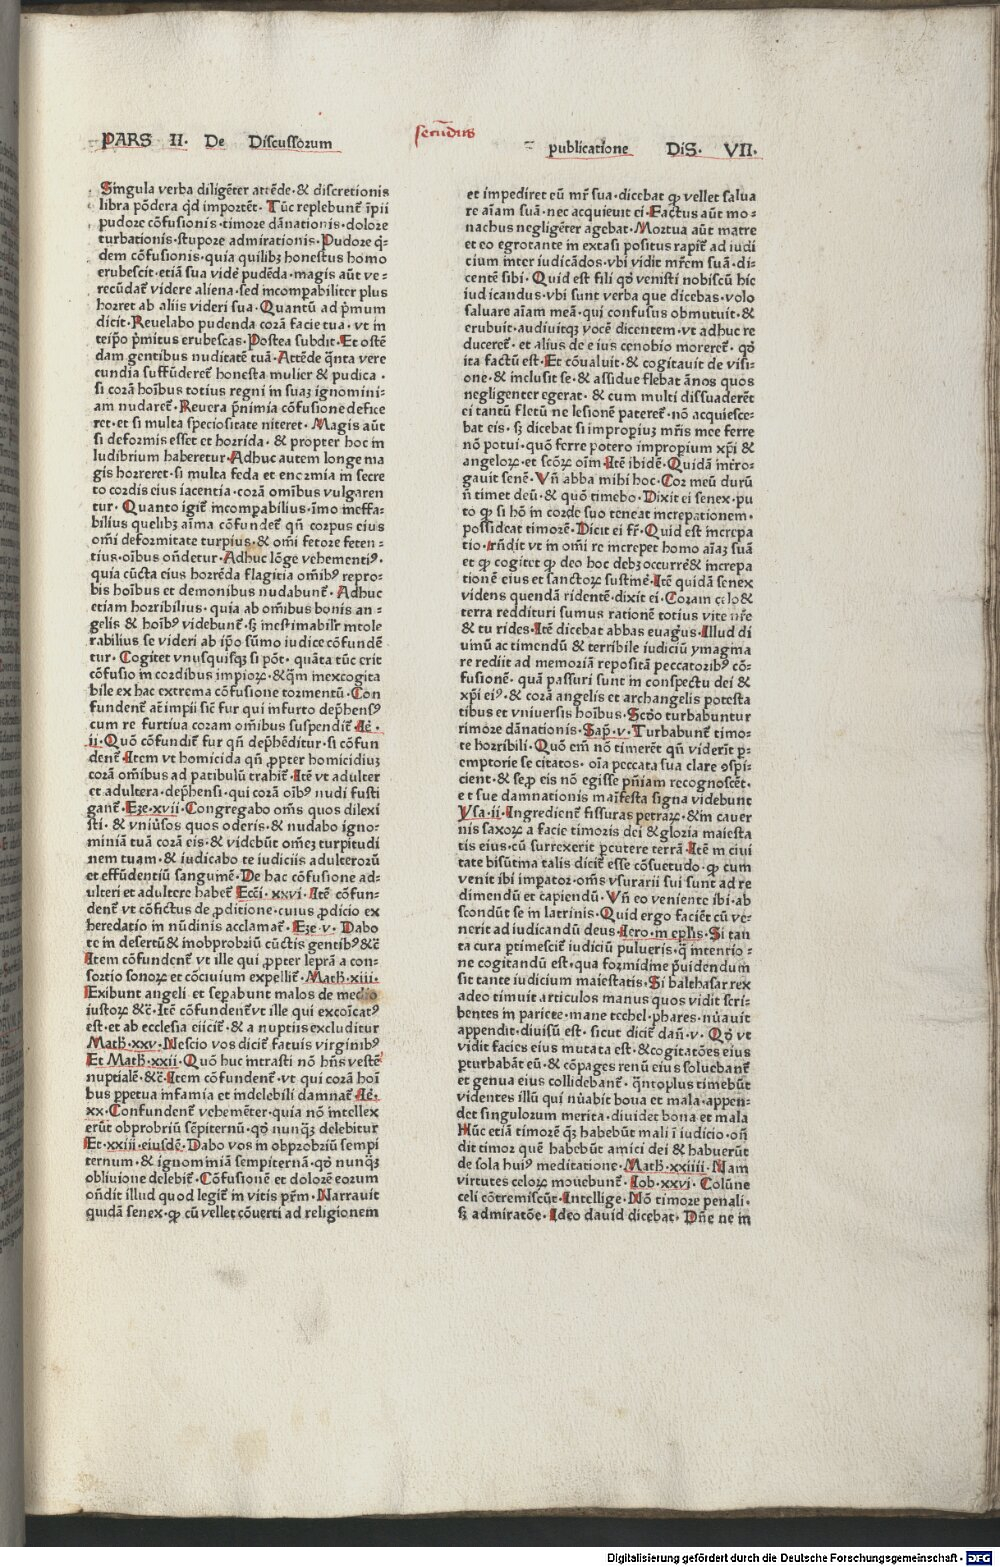 PARS II. De Discussorum
secūdus
publicatione DiS. VII.
Singula verba diligēter attēde·& discretionis
libra pōdera qd importēt· Tūc replebunt᷑ īpii
pudore cōfusionis·timore dānationis·dolore
turbationis·stupore admirationis·Pudore q̇-
dem cōfusionis·quia quilibꝫ honestus homo
erubescit·etiā sua videꝫ pudēda·magis aūt ve-
recūdat᷑ videre aliena·sed incomꝑabiliter plus
horret ab aliis videri sua·Quantū ad pͥmum
dicit·Reuelabo pudenda corā facie tua·vt in
teīpo pͥmitus erubescas·Postea subdit·Et ostē
dam gentibus nuditatē tuā·Attēde q̄nta vere
cundia suffūderet᷑ honesta mulier & pudica·
si corā hoībus totius regni in suaꝫ ignomini-
am nudaret᷑·Reuera p̄nimia cōfusione defice
ret·et si multa speciositate niteret·Magis aūt
si deformis esset et horrida·& propter hoc in
ludibrium haberetur·Adhuc autem longe ma
gis horreret·si multa feda et enormia in secre
to cordis eius iacentia·corā omībus vulgaren
tur·Quanto igit᷑ incomꝑabilius·īmo ineffa-
bilius quelibꝫ aīma cōfundet᷑ qn̄ corpus eius
om̄i deformitate turpius·& om̄i fetore feten-
tius·oībus on̄detur·Adhuc lōge vehementiꝰ·
quia cūcta eius horrēda flagitia om̄ibꝰ repro-
bis hoībus et demonibus nudabunt᷑·Adhuc
etiam horribilius·quia ab om̄ibus bonis an-
gelis & hoībꝰ videbunt᷑·sꝫ inestimabilr̄ intole
rabilius se videri ab ip̄o sūmo iudice cōfundē
tur·Cogitet vnusquisqꝫ si pōt·quāta tūc erit
cōfusio in cordibus impioꝝ·&q̄m inexcogita
bile ex hac extrema cōfusione tormentū·Con
fundent᷑ aūt impii sic̄ fur qui in furto dep̄hensꝰ
cum re furtiua coram omībus suspendit᷑·Ie·
ii·Quō cōfundit᷑ fur qn̄ dep̄hēditur·si cōfun
dent᷑·Item vt homicida qn̄ ꝓpter homicidiuꝫ
corā om̄ibus ad patibulū trahit᷑·Itē vt adulter
et adultera·dep̄hensi·qui corā oībꝰ nudi fusti
gant᷑·Eze·xvii·Congregabo om̄s quos dilexi
sti·& vniūsos quos oderis·& nudabo igno-
miniā tuā corā eis·& videbūt om̄eꝫ turpitudi
nem tuam·& iudicabo te iudiciis adulterorū
et effūdentiū sanguinē·De hac cōfusione ad-
ulteri et adultere habet᷑ Eccī·xxvi·Itē cōfun-
dent᷑ vt cōfictus de ꝓditione·cuius ꝓdicio ex
heredatio in nūdinis acclamat᷑·Eze·v·Dabo
te in desertū& inobprobriū cūctis gentibꝰ&c̄
Item cōfundent᷑ vt ille qui ꝓpter leprā a con-
sortio sonoꝝ et cōcuiuium expellit᷑·Math·xiii·
Exibunt angeli et seꝑabunt malos de medio
iustoꝝ &c̄·Itē cōfundent᷑vt ille qui excoīcatꝰ
est·et ab ecclesia eiicit᷑·& a nuptiis excluditur
Math·xxv·Nescio vos dicit᷑ fatuis virginibꝰ
Et Math·xxii·Quō huc intrasti nō hn̄s vestē
nuptialē·&c̄·Item cōfundent᷑·vt qui corā hoī
bus ꝑpetua infamia et indelebili damnat᷑ Ie·
xx·Confundent᷑ vehemēter·quia nō intellex
erūt obprobriū sēpiternū·qḋ nunqꝫ delebitur
Et·xxiii·eiusdē·Dabo vos in obprobriū sempi
ternum·& ignominiā sempiternā·qḋ nunqꝫ
obliuione delebit᷑·Cōfusionē et dolorē eorum
on̄dit illud quod legit᷑ in vitis pr̄m·Narrauit
quidā senex·ꝙ cū vellet cōuerti ad religionem
et impediret eū mr̄ sua·dicebat ꝙ vellet salua
re aīam suā·nec acquieuit ei·Factus aūt mo-
nachus negligēter agebat·Mortua aūt matre
et eo egrotante in extasi positus rapit᷑ ad iudi
cium inter iudicādos·vbi vidit mr̄em suā·di-
centē sibi·Quid est fili qḋ venisti nobiscū hic
iudicandus·vbi sunt verba que dicebas·volo
saluare aīam meā·qui confusus obmutuit·&
erubuit·audiuitqꝫ vocē dicentem·vt adhuc re
duceret᷑·et alius de eius cenobio moreret᷑·qḋ
ita factū est·Et cōualuit·& cogitauit de visi-
one·& inclusit se·& assidue flebat ānos quos
negligenter egerat·& cum multi dissuaderēt
ei tantū fletū ne lesionē pateret᷑·nō acquiesce-
bat eis·sꝫ dicebat si improꝑiuꝫ mr̄is mee ferre
nō potui·quō ferre potero improꝑium xp̄i &
angeloꝝ·et scōꝝ oīm·Itē ibidē·Quidā inter̄o-
gauit senē·Vn̄ abba mihi hoc·Cor meū durū
n̄ timet deū·& quō timebo·Dixit ei senex·pu
to ꝙ si hō in corde suo teneat increpationem·
possideat timorē·Dicit ei fr̄·Quid est increpa
tio·rn̄dit vt in om̄i re increpet homo aīaꝫ suā
et ꝙ cogitet ꝙ deo hoc debꝫ occurrē& increpa
tionē eius et sanctoꝝ sustinē·Itē quidā senex
videns quendā ridentē·dixit ei·Coram celo&
terra reddituri sumus rationē totius vite nr̄e
& tu rides·Itē dicebat abbas euagrꝰ·Illud di
uinū ac timendū & terribile iudiciū ymagina
re rediit ad memoriā repositā peccatoribꝰ cō-
fusionē·quā passuri sunt in conspectu dei &
xp̄i eiꝰ·& corā angelis et archangelis potesta
tibus et vniuersis hoībus·Scḋo turbabuntur
timore dānationis·Sap·v·Turbabunt᷑ timo-
re horribili·Quō em̄ nō timerēt qn̄ viderīt ꝑ-
emptorie se citatos·oīa peccata sua clare ꝯspi-
cient·& seꝓ eis nō egisse pn̄iam recognoscēt·
et sue damnationis maīfesta signa videbunt
Ysa·ii·Ingredient᷑ fissuras petraꝝ·&in cauer
nis saxoꝝ a facie timoris dei &gloria maiesta
tis eius·cū surrexerit ꝑcutere terrā·Itē in ciui
tate bisūtina talis dicit᷑ esse cōsuetudo·ꝙ cum
venit ibi imꝑator·om̄s vsurarii sui sunt ad re
dimendū et capiendū·Vn̄ eo veniente ibi·ab
scondūt se in latrinis·Quid ergo faciēt cū ve-
nerit ad iudicandū deus·Iero·in ep̄lis·Si tan
ta cura ꝑtimescit᷑ iudiciū pulueris·q̄ intentio-
ne cogitandū est·qua formidine p̄uidendum
sit tante iudicium maiestatis·Si balthasar rex
adeo timuit articulos manus quos vidit scri-
bentes in pariete·mane techel·phares·nūauit
appendit·diuisū est·sicut dicit᷑ dan̄·v·Qḋ vt
vidit facies eius mutata est·&cogitatōes eius
ꝑturbabāt eū·& cōpages renū eius soluebant᷑
et genua eius collidebant᷑·q̄ntoplus timebūt
videntes illū qui nūabit bona et mala·appen-
det singulorum merita·diuidet bona et mala
Hūc etiā timorē qꝫ habebūt mali ī iudicio·on̄
dit timor quē habebūt amici dei & habuerūt
de sola huiꝰ meditatione·Math·xxiiii·Nam
virtutes celoꝝ mouebunt᷑·Iob·xxvi·Colūne
celi cōtremiscūt·Intellige·Nō timore penali·
sꝫ admiratōe·Ideo dauid dicebat·Dn̄e ne in
Digitalisierung gefördert durch die Deutsche Forschungsgemeinschaft - DFG